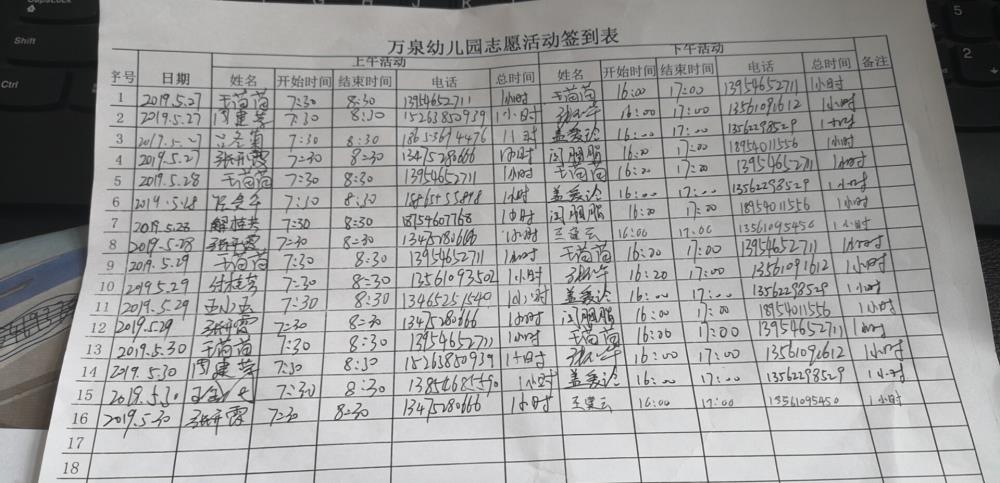 万泉幼儿园志愿活动签到表
上午活动 下午活动
序号 日期 姓名 开始时间 结束时间 电话 总时间 姓名 开始时间 结束时间 电话 总时间 备注
1 2019.5.27 王苗苗 7:30 8:30 13954652711 1小时 王苗苗 16:00 17:00 13954652711 1小时
2 2019.5.27 周建華 7:30 8:30 15263850939 1小时 16:00 17:00 13561091612 1小时
3 2019.5.27 7:30 8:30 18653644476 1小时 盖爱论 16:00 17:00 13562298529 1小时
4 2019.5.27 张开霞 7:30 8:30 13475280666 1小时 闫胭脂 16:20 17:00 18954011556 1小时
5 2019.5.28 王苗苗 7:30 8:30 13954652711 1小时 王苗苗 16:20 17:20 13954652711 1小时
6 2019.5.28 7:30 8:30 1小时 盖爱论 16:00 17:00 13562298529 1小时
7 2019.5.28 解桂英 7:30 8:30 18954607768 1小时 闫胭脂 16:20 17:20 18954011556 1小时
8 2019.5.28 张开霞 7:30 8:30 13475280666 1小时 王建云 16:00 17:00 13561095450 1小时
9 2019.5.29 王苗苗 7:30 8:30 13954652711 1小时 王苗苗 16:20 17:00 13954652711 1小时
10 2019.5.29 7:30 8:30 13561093502 1小时 16:20 17:00 13561091612 1小时
11 2019.5.29 王小玉 7:30 8:30 13465251540 1小时 盖爱论 16:00 17:00 13562298529 1小时
12 2019.5.29 张开霞 7:30 8:30 13475280666 1小时 闫胭脂 16:00 17:00 18954011556 1小时
13 2019.5.30 王苗苗 7:30 8:30 13954652711 1小时 王苗苗 16:00 17:00 13954652711 1小时
14 2019.5.30 周建華 7:30 8:30 15263880939 1小时 16:00 17:00 13561091612 1小时
15 2019.5.30 7:30 8:30 13854685590 1小时 盖爱论 16:00 17:00 13562298529 1小时
16 2019.5.30 张开霞 7:30 8:30 13475280666 1小时 王建云 16:00 17:00 13561095450 1小时
17
18
Shift
Ctrl